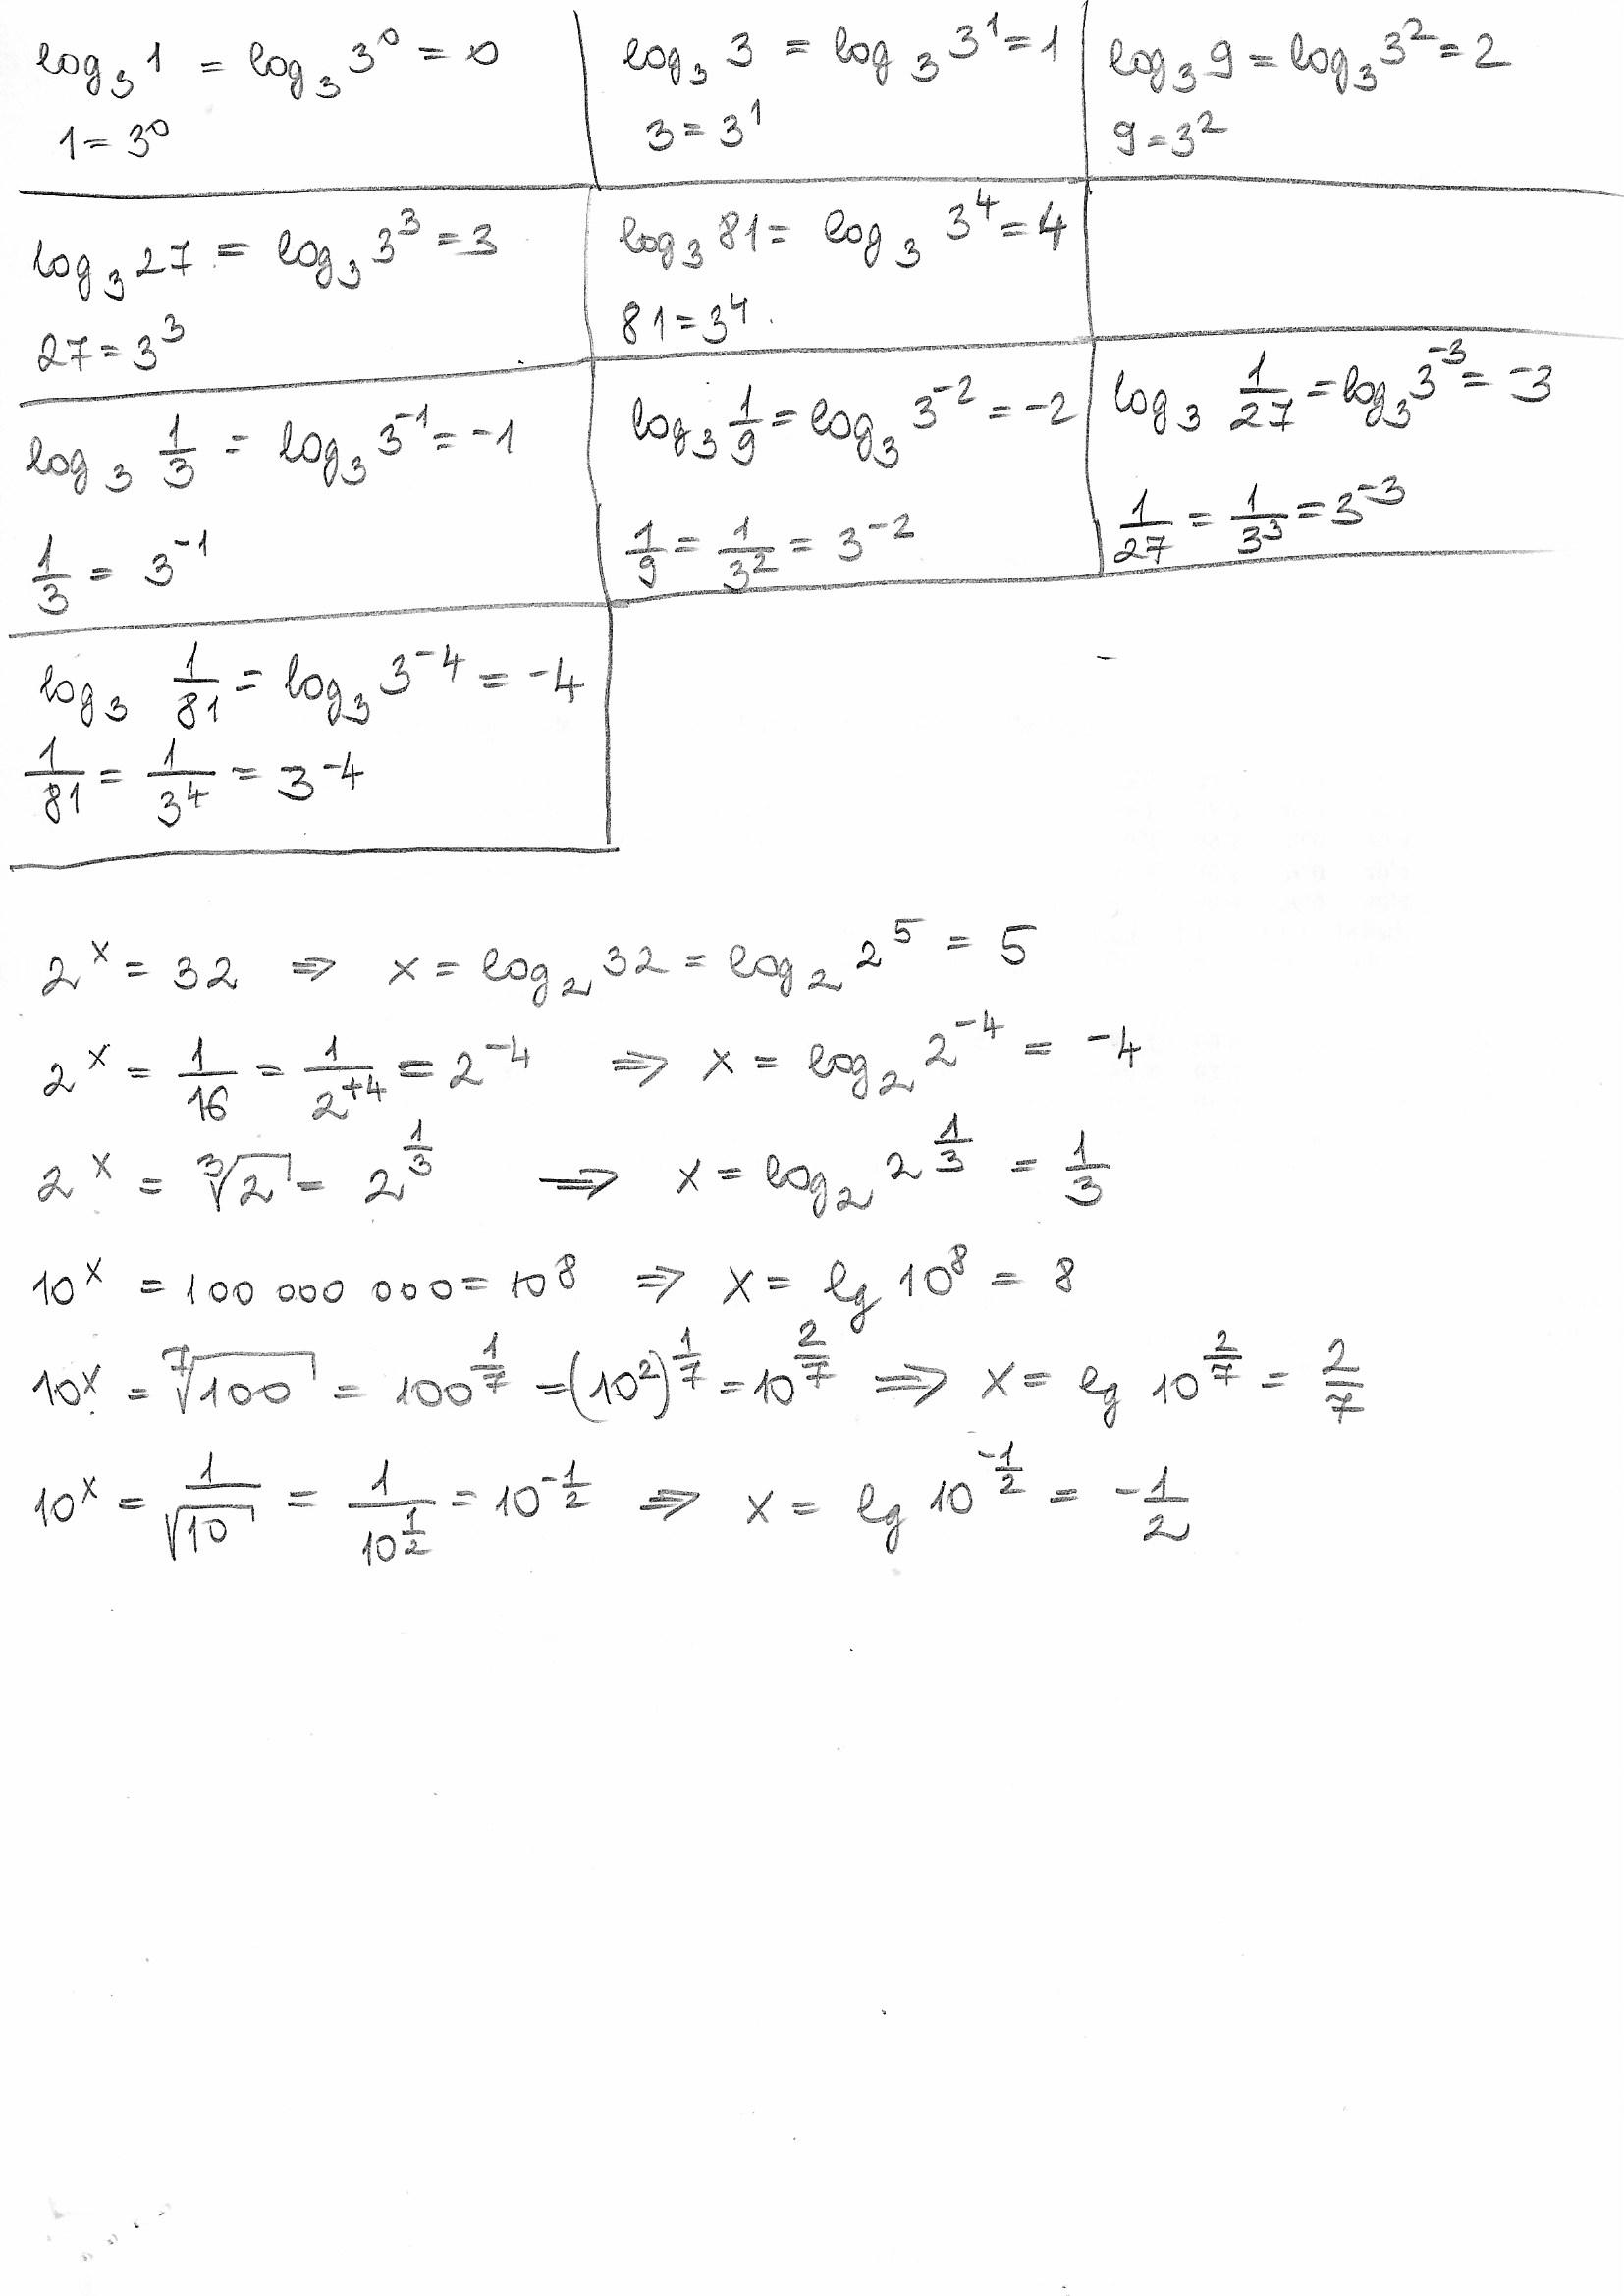 log₃ 1 = log₃ 3⁰ = 0
1 = 3⁰
log₃ 3 = log₃ 3¹ = 1
3 = 3¹
log₃ 9 = log₃ 3² = 2
9 = 3²
log₃ 27 = log₃ 3³ = 3
27 = 3³
log₃ 81 = log₃ 3⁴ = 4
81 = 3⁴.
log₃ 1/3 = log₃ 3⁻¹ = -1
1/3 = 3⁻¹
log₃ 1/9 = log₃ 3⁻² = -2
1/9 = 1/3² = 3⁻²
log₃ 1/27 = log₃ 3⁻³ = -3
1/27 = 1/3³ = 3⁻³
log₃ 1/81 = log₃ 3⁻⁴ = -4
1/81 = 1/3⁴ = 3⁻⁴
2^x = 32 ⇒ x = log₂ 32 = log₂ 2⁵ = 5
2^x = 1/16 = 1/2⁺⁴ = 2⁻⁴ ⇒ x = log₂ 2⁻⁴ = -4
2^x = ∛2 = 2^(1/3) ⇒ x = log₂ 2^(1/3) = 1/3
10^x = 100 000 000 = 10⁸ ⇒ x = lg 10⁸ = 8
10^x = ⁷√100 = 100^(1/7) = (10²)^(1/7) = 10^(2/7) ⇒ x = lg 10^(2/7) = 2/7
10^x = 1/√10 = 1/10^(1/2) = 10^(-1/2) ⇒ x = lg 10^(-1/2) = -1/2